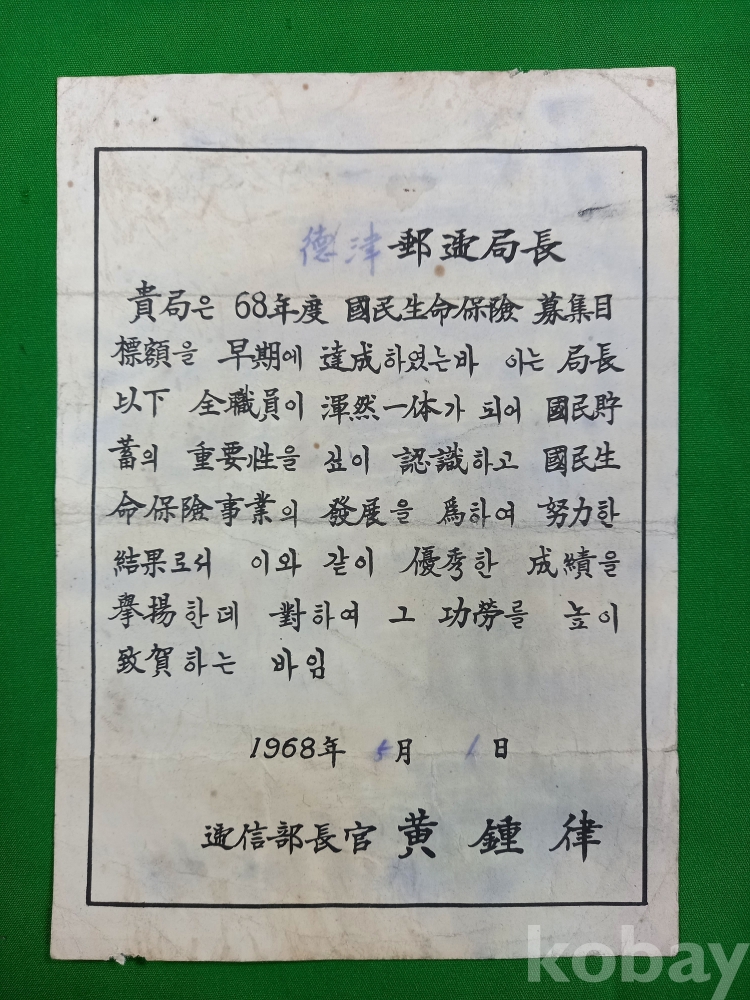 德津 郵遞局長
貴局은 68年度 國民生命保險 募集目
標額을 早期에 達成하였는바 이는 局長
以下 全職員이 渾然一体가 되어 國民貯
蓄의 重要性을 깊이 認識하고 國民生
命保險事業의 發展을 爲하여 努力한
結果로서 이와 같이 優秀한 成績을
擧揚한데 對하여 그 功勞를 높이
致賀하는 바임
1968年 5月 1日
遞信部長官 黃 鍾 律
kobay